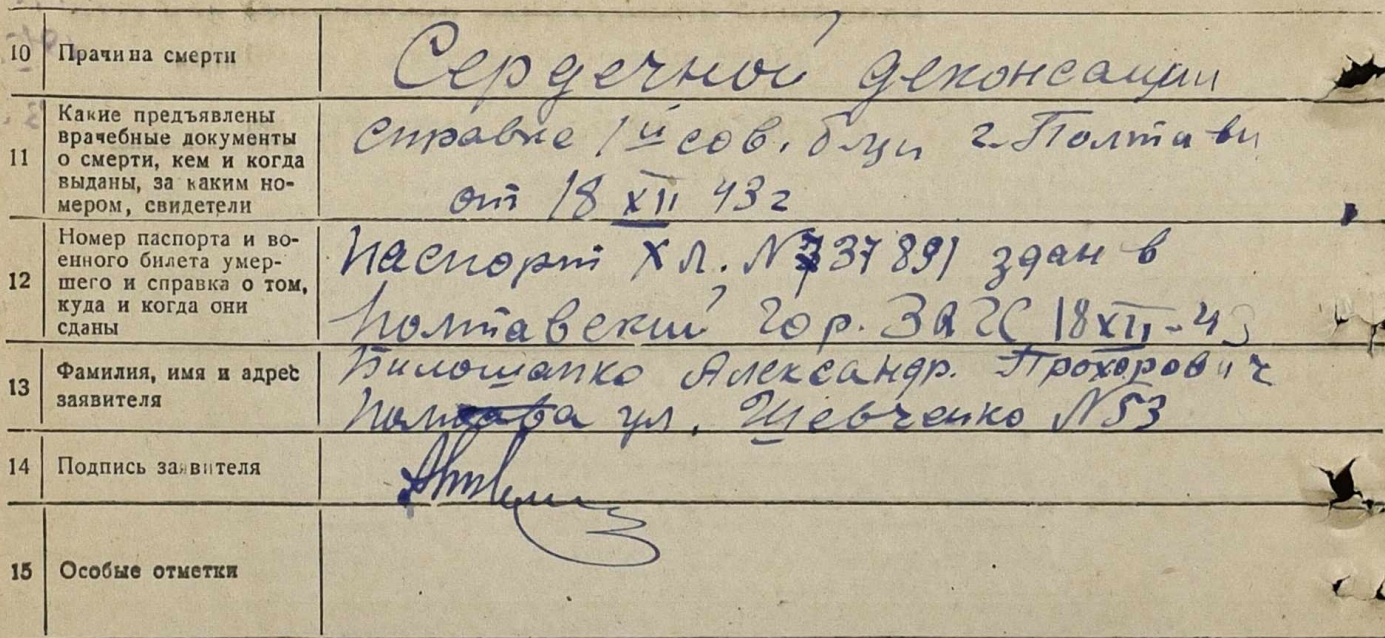 10 Прачина смерти Сердечной деконсации
11 Какие предъявлены врачебные документы о смерти, кем и когда выданы, за каким номером, свидетели
справке 1й сов. б-ци г. Полтави
от 18 XII 43 г
12 Номер паспорта и военного билета умершего и справка о том, куда и когда они сданы
паспорт ХЛ. № 737891 здан в
Полтавский Гор. ЗАГС 18 XII - 43
13 Фамилия, имя и адрес заявителя
Билошапко Александр. Прохорович
Полтава ул. Шевченко № 53
14 Подпись заявителя
15 Особые отметки